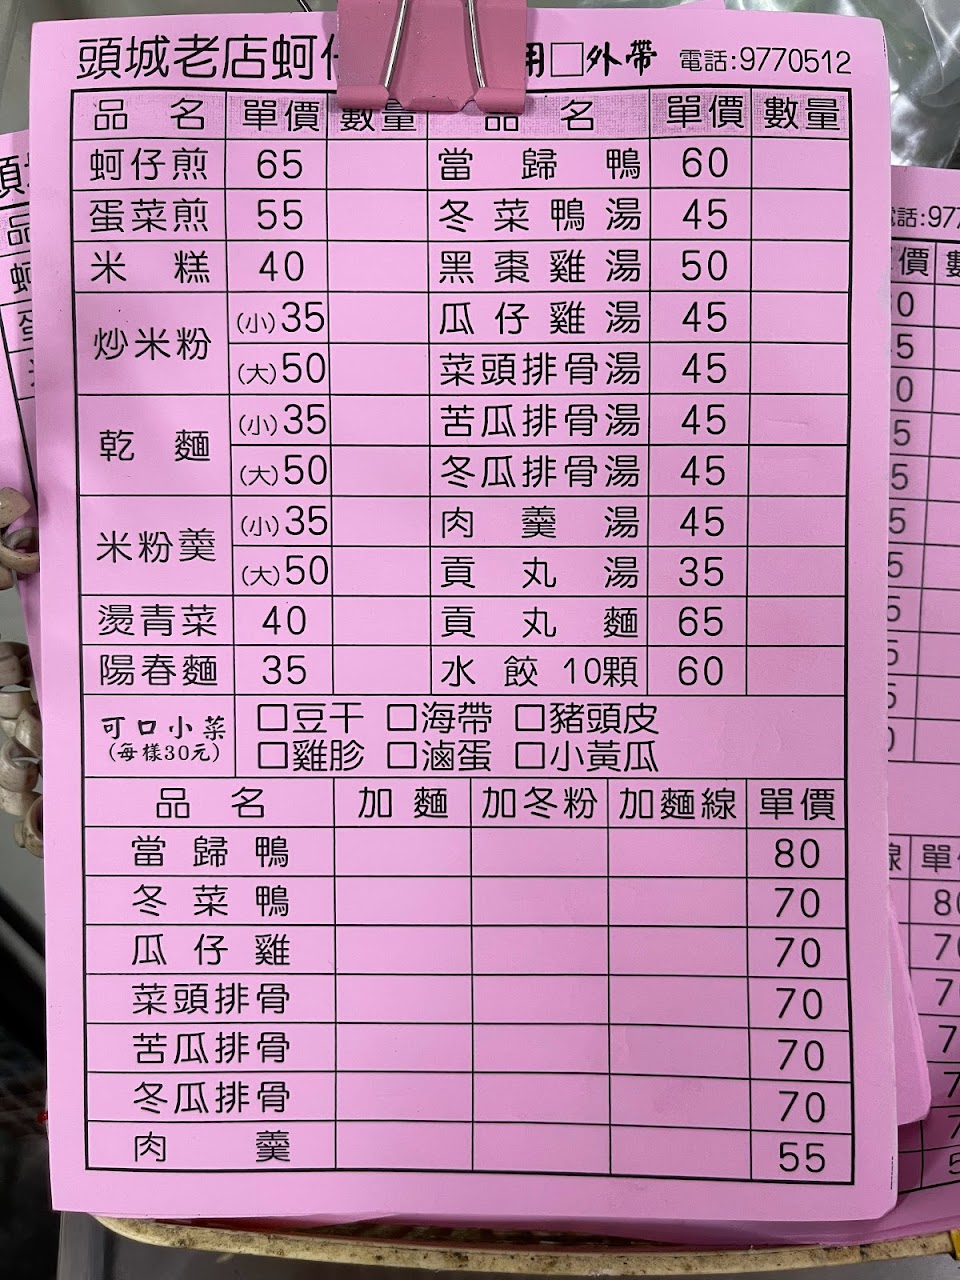 頭城老店蚵仔 用□外帶 電話:9770512
品名 單價 數量 品名 單價 數量
蚵仔煎 65 當歸鴨 60
蛋菜煎 55 冬菜鴨湯 45
米糕 40 黑棗雞湯 50
炒米粉 (小)35 瓜仔雞湯 45
(大)50 菜頭排骨湯 45
乾麵 (小)35 苦瓜排骨湯 45
(大)50 冬瓜排骨湯 45
米粉羹 (小)35 肉羹湯 45
(大)50 貢丸湯 35
燙青菜 40 貢丸麵 65
陽春麵 35 水餃10顆 60
可口小菜 □豆干 □海帶 □豬頭皮
(每樣30元) □雞胗 □滷蛋 □小黃瓜
品名 加麵 加冬粉 加麵線 單價
當歸鴨 80
冬菜鴨 70
瓜仔雞 70
菜頭排骨 70
苦瓜排骨 70
冬瓜排骨 70
肉羹 55